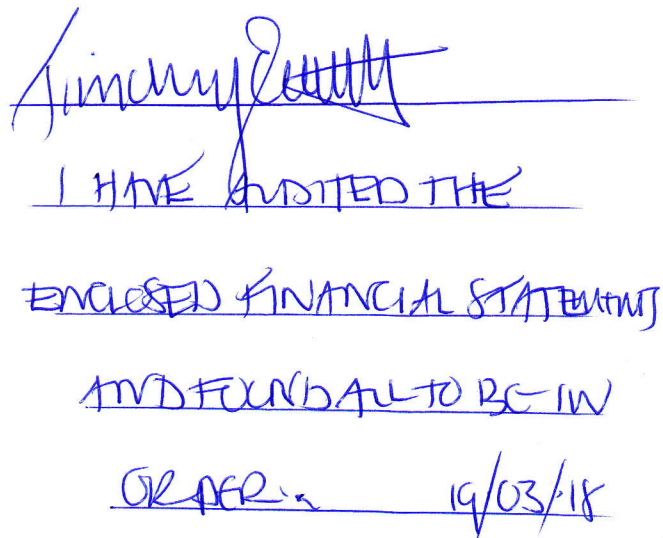 I HAVE AUDITED THE
ENCLOSED FINANCIAL STATEMENTS
AND FOUND ALL TO BE IN
ORDER. 19/03/18